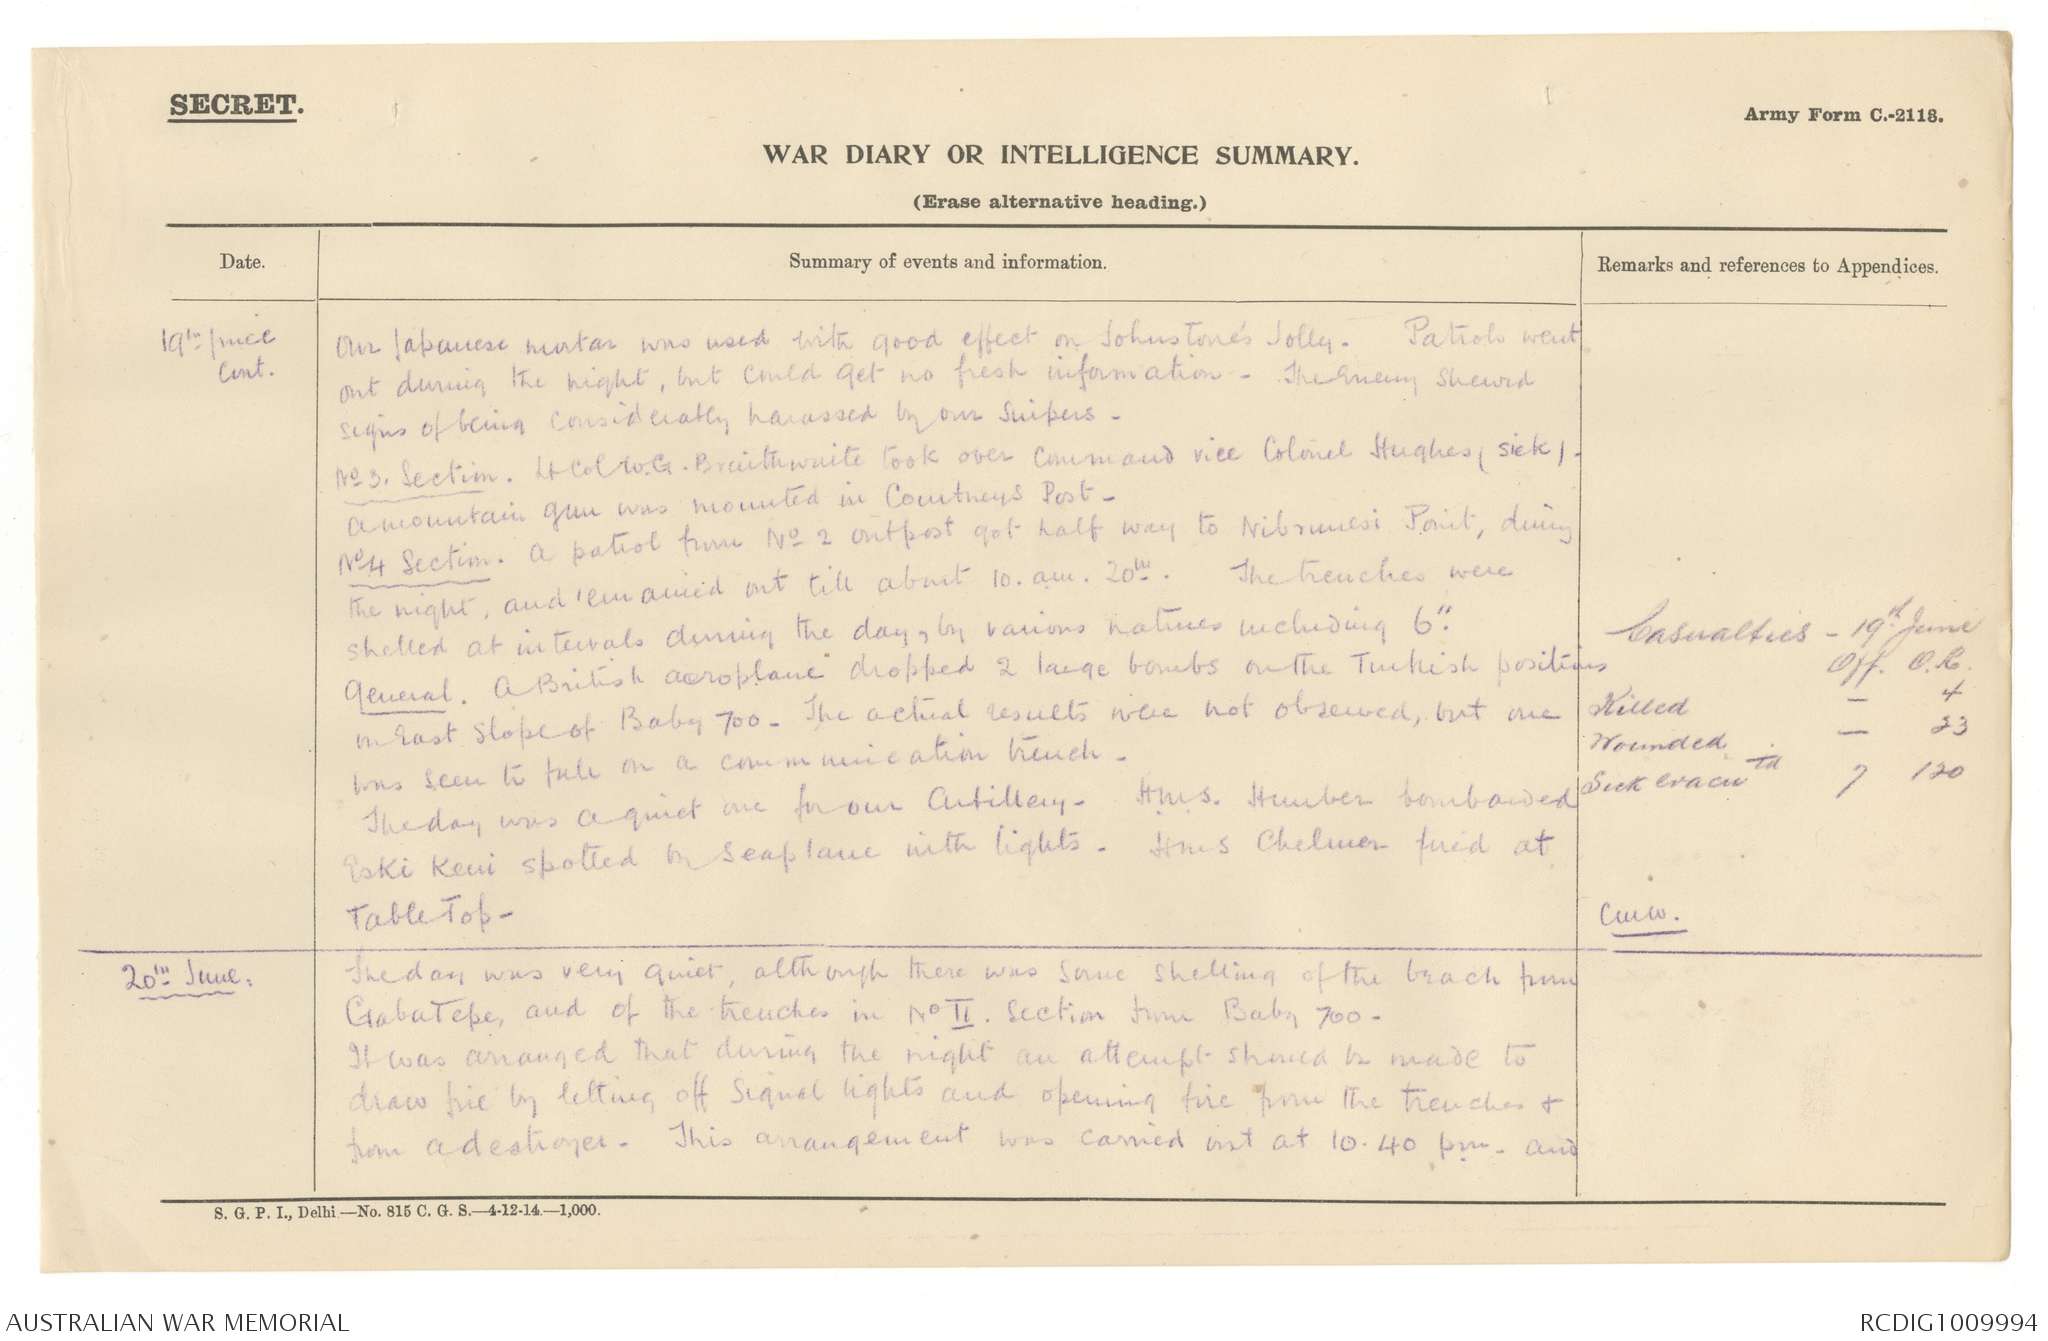 SECRET.
Army Form C.-2118.
WAR DIARY OR INTELLIGENCE SUMMARY.
(Erase alternative heading.)
Date.
Summary of events and information.
Remarks and references to Appendices.
19th June
Cont.
Our Japanese mortar was used with good effect on Johnstone's Jolly. Patrols went
out during the night, but could get no fresh information - The Enemy shewed
signs of being considerably harassed by our snipers -
No 3. Section. Lt Col W.G. Braithwaite took over command vice Colonel Hughes (sick).
A mountain gun was mounted in Courtneys Post -
No 4 Section. A patrol from No 2 outpost got half way to Nibrunesi Point, during
the night, and remained out till about 10. am. 20th. The trenches were
shelled at intervals during the day, by various natures including 6".
General. A British aeroplane dropped 2 large bombs on the Turkish positions
on East Slope of Baby 700 - The actual results were not observed, but one
was seen to fall on a communication trench -
The day was a quiet one for our Artillery - H.M.S. Humber bombarded
Eski Keui spotted by seaplane with lights - HMS Chelmer fired at
Table Top -
Casualties - 19th June
Off. O.R.
Killed - 4
Wounded - 23
Sick evacutd 7 120
CMW.
20th June.
The day was very quiet, although there was some shelling of the beach from
GabaTepe, and of the trenches in No II. Section from Baby 700 -
It was arranged that during the night an attempt should be made to
draw fire by letting off signal lights and opening fire from the trenches &
from a destroyer - This arrangement was carried out at 10.40 pm. and
S. G. P. I., Delhi—No. 815 C. G. S.—4-12-14—1,000.
AUSTRALIAN WAR MEMORIAL
RCDIG1009994